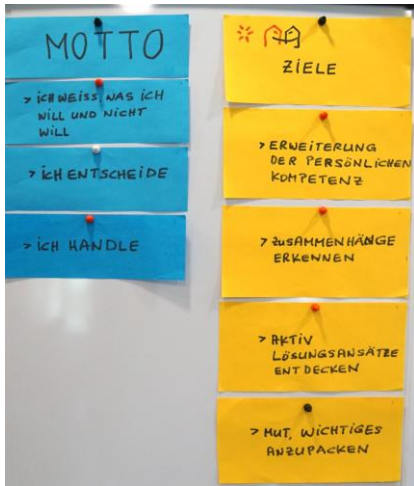 MOTTO
> ICH WEISS, WAS ICH
WILL UND NICHT
WILL
> ICH ENTSCHEIDE
> ICH HANDLE
ZIELE
> ERWEITERUNG
DER PERSÖNLICHEN
KOMPETENZ
> ZUSAMMENHÄNGE
ERKENNEN
> AKTIV
LÖSUNGSANSÄTZE
ENTDECKEN
> MUT, WICHTIGES
ANZUPACKEN